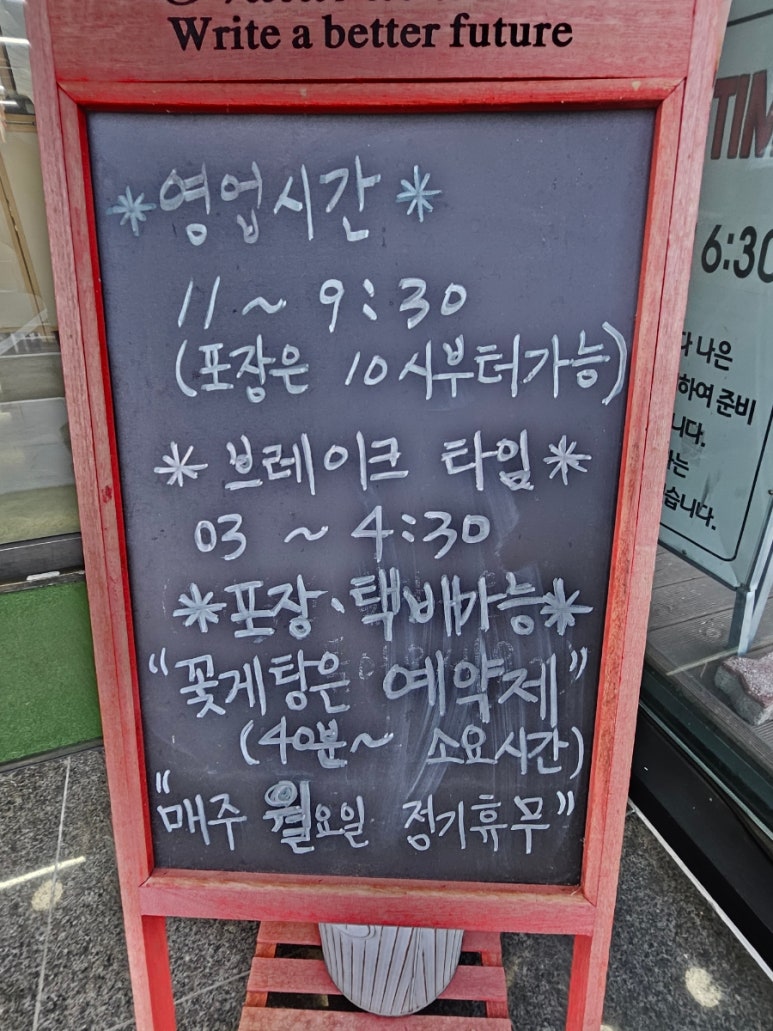 Write a better future
*영업시간*
11 ~ 9:30
(포장은 10시부터가능)
*브레이크 타임*
03 ~ 4:30
*포장·택배가능*
"꽃게탕은 예약제"
(40분~ 소요시간)
"매주 월요일 정기휴무"
TIM
6:30
나은
하여 준비
니다.
습니다.